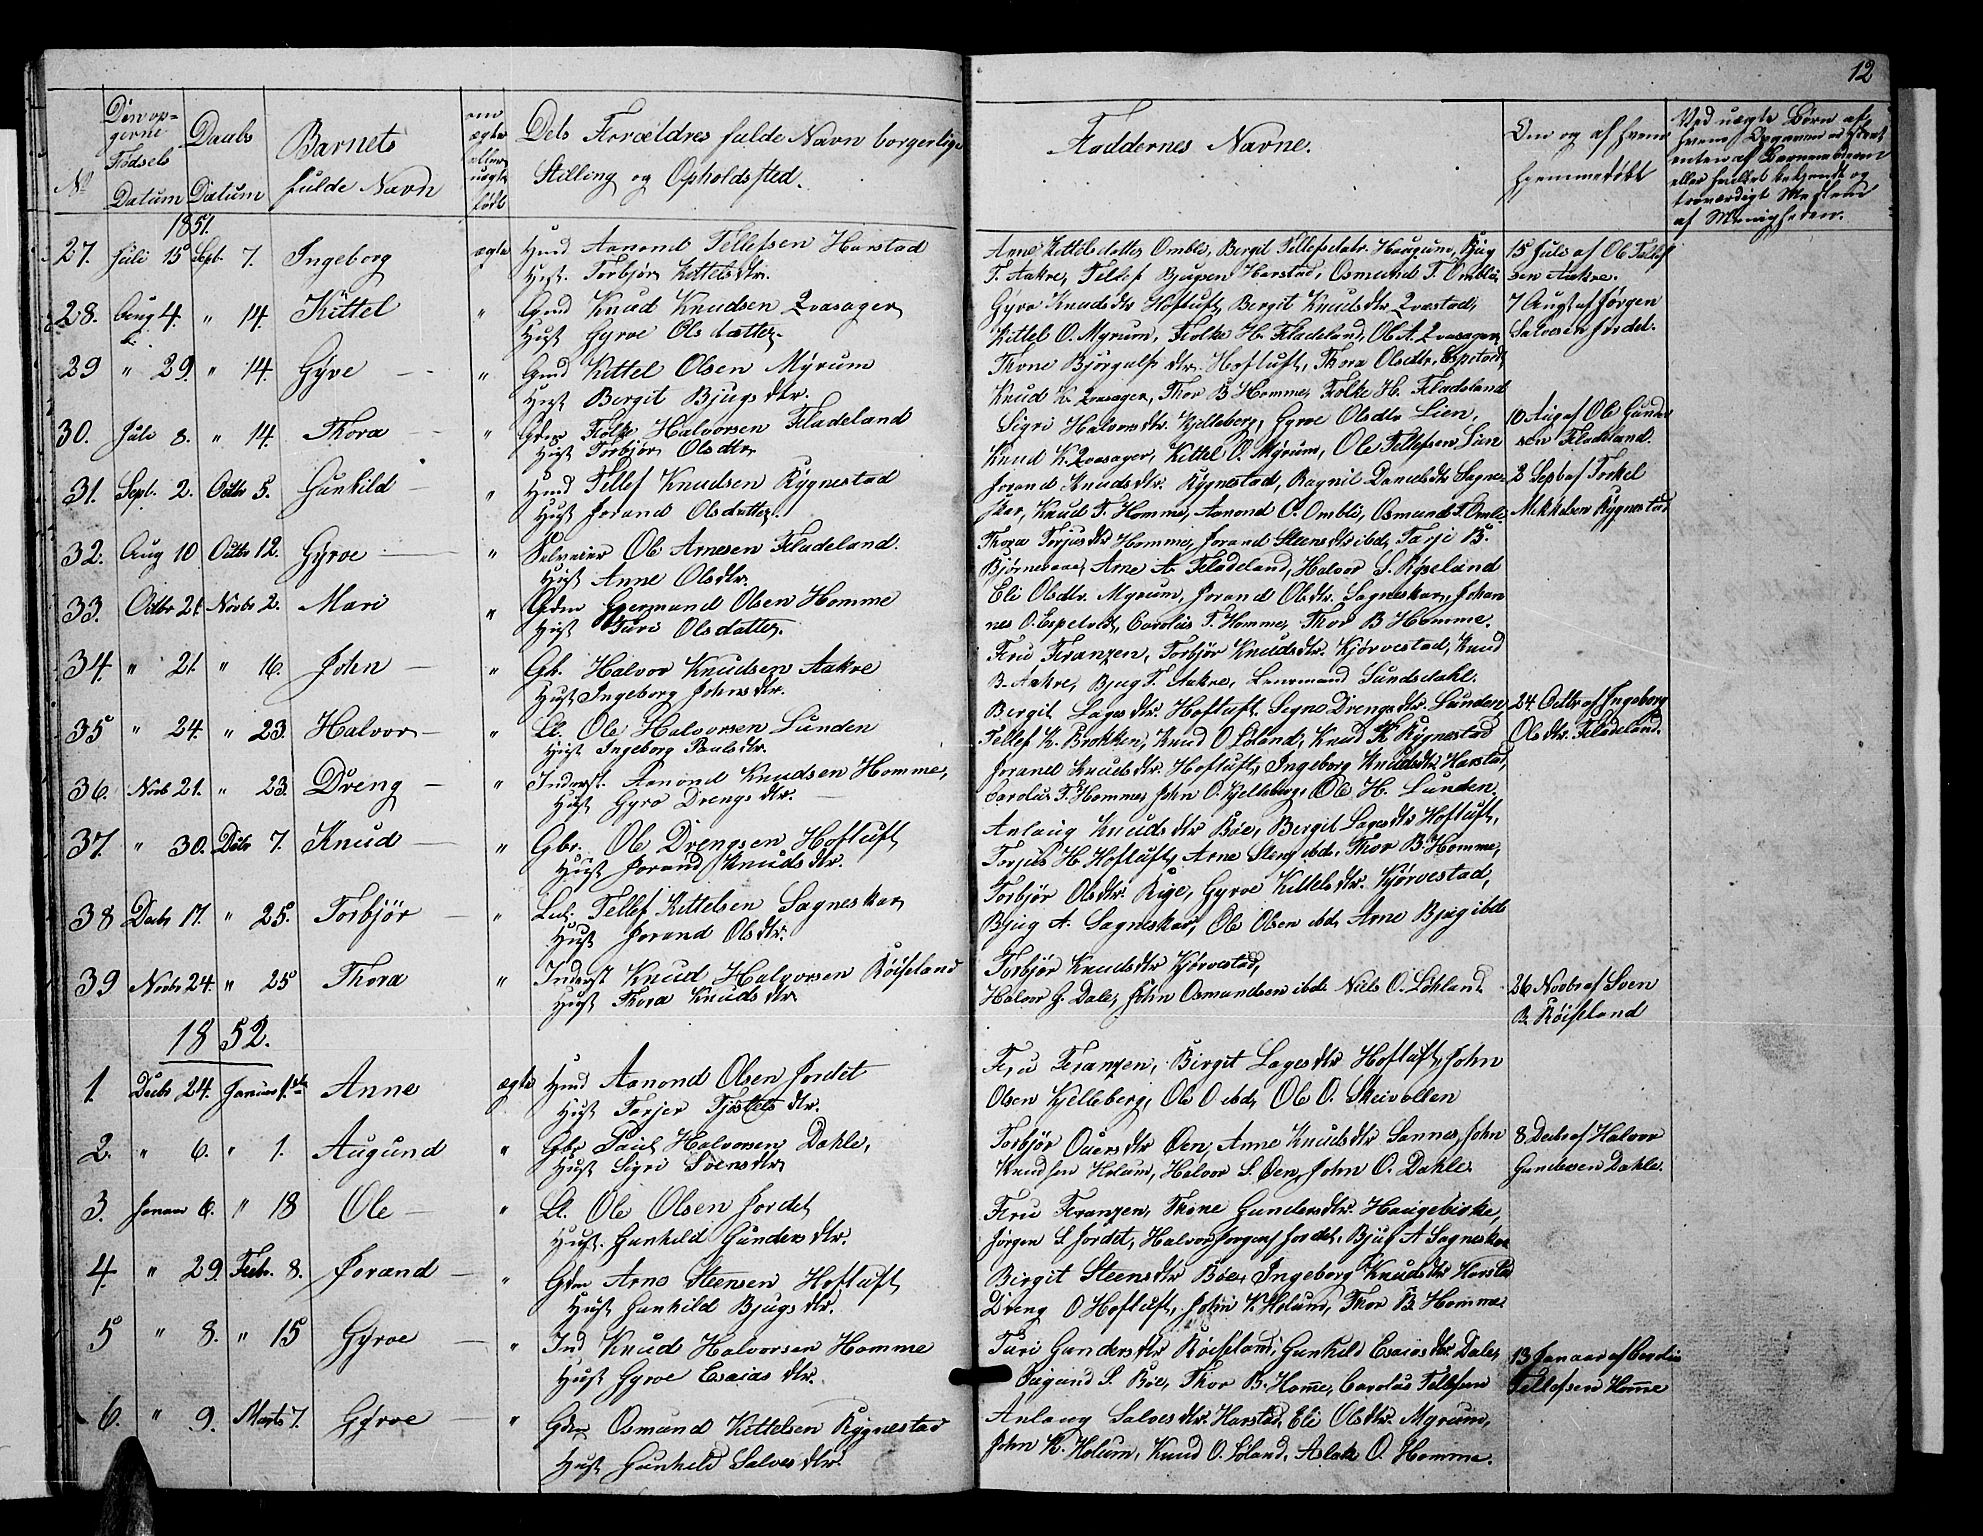 12
No
Den op=
givne
Fødsels
Datum
Daabs
Datum
Barnets
fulde Navn
om
ægte
eller
uægte
født
Dets Forældres fulde Navn borgerlige
Stilling og Opholdssted.
Faddernes Navne.
Om og af hvem
hjemmedøbt
Ved uægte Børn af
hvem Opgaven er skeet
enten af Barnemoderen
eller hvilket bekjendt og
troværdigt Medlem
af Menigheden.
1851.
27. Juli 15 Sept. 7. Ingeborg ægte Hmd Aanond Tellefsen Harstad
Hust. Torbjør Kittelsdtr.
Anne Kittilsdatter Omblie, Bergit Tellefsdatr. Haugum, Bjug
T. Aakre, Tellef Bjugsen Harstad, Osmund T. Omblie
15 Juli af Ole Tellef
sen Aakre.
28. Aug 4. " 14. Kittel " Gmd Knud Knudsen Qvasager
Hust Gyroe Olsdatter.
Gyro Knudsdtr Hofluft, Bergit Knudsdtr Qvestad,
Kittel O. Myrum, Folke H. Fladeland, Ole A. Qvasager
7 Augst af Jørgen
Salvesen Jordet.
29 " 29. " 14. Gyve " Gmd Kittel Olsen Myrum
Hust Bergit Bjugsdtr.
Thone Bjørgulfsdtr. Hofluft, Thora Olsdtr. Espetvedt,
Knud K. Qvasager, Thor B Homme, Folke H. Fladeland
30. Juli 8. " 14. Thora " Gdm Folke Halvorsen Fladeland
Hust Torbjør Olsdtr
Sigri Halvorsdtr. Kjelleberg, Gyroe Olsdtr Lien,
Knud K. Qvasager, Kittel O. Myrum, Ole Tellefsen Lien
10 Aug af Ole Gunder
sen Fladeland.
31. Sept. 2. Octbr 5. Gunhild " Hmd Tellef Knudsen Rygnestad
Hust Jorand Olsdatter.
Jorand Knudsdtr. Rygnestad, Ragnil Danielsdtr Sagne
skar, Knud T. Homme, Aanond O. Omblie, Osmund T. Omli
2 Sept af Torkel
Mikkelsen Rygnestad
32. Aug 10 Octbr 12. Gyroe " Selveier Ole Arnesen Fladeland.
Hust Anne Olsdtr.
Thora Torjusdtr Homme, Jorand Steensdtr ibd, Tarje B.
Bjørnevaae, Arne A. Fladeland, Halvor S. Rysland
33. Octbr 21. Novbr 2. Mari " Gdm Germund Olsen Homme
Hust Turi Olsdatter.
Eli Olsdtr. Myrum, Jorand Olsdtr. Sagneskar, Johan
nes O. Espetvedt, Carolus T. Homme, Thor B Homme.
34. " 21. " 16. John " Gb. Halvor Knudsen Aakre
Hust Ingeborg Johnsdtr.
Fru Franzen, Torbjør Knudsdtr. Kjørvestad, Knud
B. Aakre, Bjug T. Aakre, Lensmand Sundsdahl.
35 " 24. " 23. Halvor " Ll. Ole Halvorsen Lunden
Hust Ingeborg Paulsdtr.
Bergit Lagesdtr. Hofluft. Signe Drengsdtr. Lunden
Tellef K. Brokken, Knud O Løland, Knud K Rygnestad
24 Octbr af Ingeborg
Olsdtr. Fladeland.
36. Novb 21. " 23. Dreng " Inderst. Aanond Knudsen Homme,
Hust Gyro Drengsdtr.
Jorand Knudsdtr. Hofluft, Ingeborg Knudsdtr Harstad,
Carolus T. Homme, John O. Kjelleberg, Ole H. Lunden.
37. " 30. Decbr 7. Knud " Gbr. Ole Drengsen Hofluft
Hust Jorand Knudsdtr.
Anlaug Knudsdtr Bøe, Bergit Lagesdtr Hofluft,
Torjus H. Hofluft, Arne Stens ibd. Thor B. Homme,
38 Decbr 17. " 25. Torbjør " Lul. Tellef Kittelsen Sagneskar
Hust Jorand Olsdtr.
Torbjør Olsdtr. Rige, Gyroe Kittelsdtr. Kjørvestad,
Bjug A. Sagneskar, Ole Olsen ibd, Arne Bjug ibd
39 Novbr 24. " 25 Thora " Inderst Knud Halvorsen Røiseland
Hust Thora Knudsdtr
Torbjør Knudsdtr Kjørvestad,
Halvor J. Dale, John Osmundsen ibd. Niels O. Løhland.
26 Novbr af Sven
B. Røiseland
1852.
1. Decbr 24. Januar 1ste Anne ægte Hmd Aanond Olsen Jordet
Hust Torjer Tjøstelsdtr.
Fru Franzen, Birgit Lagesdtr Hofluft, John
Olsen Kjelleberg, Ole O ibd, Ole O. Skeivollen
2. " 6. " 1. Augund " Gbr Paul Halvorsen Dahle,
Hust Sigri Svensdtr
Torbjør Ouersdtr Øen, Anne Knudsdtr Sannes, John
Knudsen Holum, Halvor S. Øen, John O. Dahle
8 Decbr af Halvor
Gundersen Dahle.
3. Januar 6. " 18 Ole " Ll. Ole Olsen Jordet
Hust. Gunhild Gundersdtr.
Fru Franzen, Thone Gundersdtr. Haugebirke,
Jørgen S Jordet, Halvor Jørgens Jordet, Bjug A Sagneskar
4. " 29. Febr. 8. Jorand " Gdm Arne Steensen Hofluft
Hust Gunhild Bjugsdtr.
Birgit Steensdtr Bøe, Ingeborg Knudsdtr Harstad
Dreng O Hofluft, John K Holum, Thor B. Homme
5 " 8. " 15 Gyroe " Ind Knud Halvorsen Homme
Hust Gyroe Esaiasdtr.
Turi Gundersdtr Røiseland, Gunhild Esaiasdtr. Dale,
Augund S. Bøe, Thor B. Home, Carolus Tellefsen
13 Januar af Carolus
Tellefsen Home
6. " 9. Marts 7. Gyroe " Gdm Osmund Kittelsen Rygnestad
Hust Gunhild Salvesdtr.
Anlaug Salvesdtr. Harstad, Eli Olsdtr. Myrum,
John K. Holum, Knud O. Løland, Aslak O. Homme.